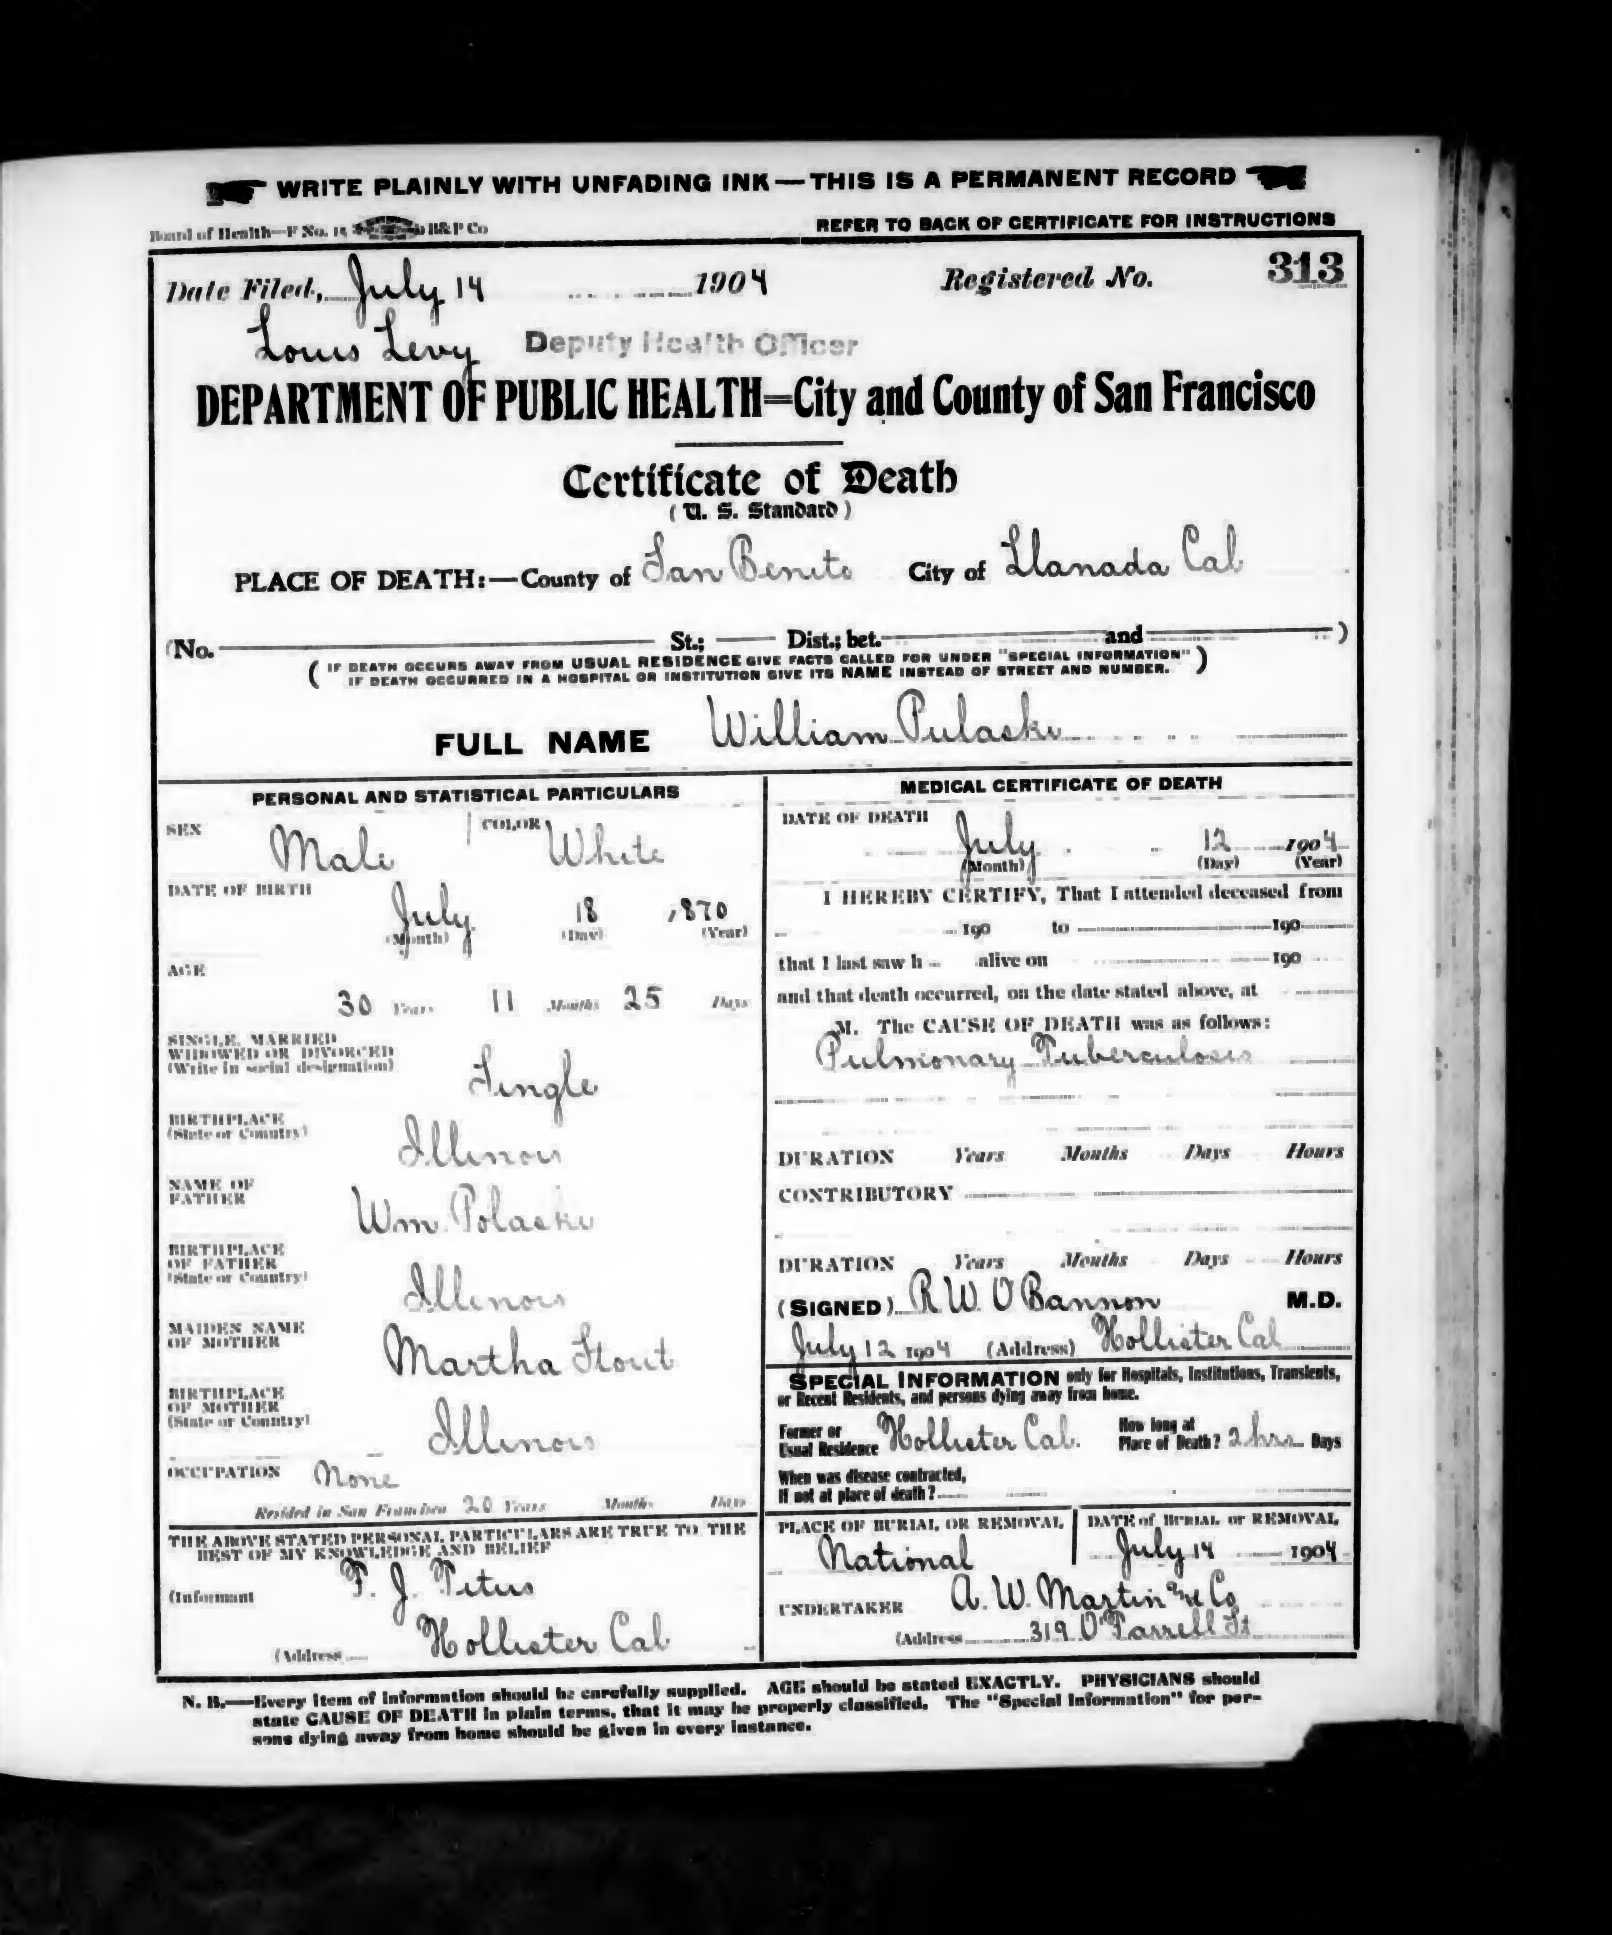 WRITE PLAINLY WITH UNFADING INK—THIS IS A PERMANENT RECORD
Board of Health—F No. 15 H&P Co REFER TO BACK OF CERTIFICATE FOR INSTRUCTIONS
Date Filed, July 14 1904 Registered No. 313
Louis Levy Deputy Health Officer
DEPARTMENT OF PUBLIC HEALTH=City and County of San Francisco
Certificate of Death
( U. S. Standard )
PLACE OF DEATH:—County of San Benito City of Llanada Cal
(No. St.; Dist.; bet. and )
( IF DEATH OCCURS AWAY FROM USUAL RESIDENCE GIVE FACTS CALLED FOR UNDER "SPECIAL INFORMATION" )
IF DEATH OCCURRED IN A HOSPITAL OR INSTITUTION GIVE ITS NAME INSTEAD OF STREET AND NUMBER.
FULL NAME William Pulaski
PERSONAL AND STATISTICAL PARTICULARS
SEX Male COLOR White
DATE OF BIRTH
July 18 1870
(Month) (Day) (Year)
AGE
30 Years 11 Months 25 Days
SINGLE, MARRIED
WIDOWED OR DIVORCED
(Write in social designation) Single
BIRTHPLACE
(State or Country) Illinois
NAME OF
FATHER Wm. Polaski
BIRTHPLACE
OF FATHER
(State or Country) Illinois
MAIDEN NAME
OF MOTHER Martha Stout
BIRTHPLACE
OF MOTHER
(State or Country) Illinois
OCCUPATION None
Resided in San Francisco 20 Years Months Days
THE ABOVE STATED PERSONAL PARTICULARS ARE TRUE TO THE
BEST OF MY KNOWLEDGE AND BELIEF
(Informant F. J. Titus
(Address Hollister Cal
MEDICAL CERTIFICATE OF DEATH
DATE OF DEATH
July 12 1904
(Month) (Day) (Year)
I HEREBY CERTIFY, That I attended deceased from
190 to 190
that I last saw h alive on 190
and that death occurred, on the date stated above, at
M. The CAUSE OF DEATH was as follows:
Pulmonary Tuberculosis
DURATION Years Months Days Hours
CONTRIBUTORY
DURATION Years Months Days Hours
(SIGNED) R. W. O Bannon M.D.
July 12 1904 (Address) Hollister Cal
SPECIAL INFORMATION only for Hospitals, Institutions, Transients,
or Recent Residents, and persons dying away from home.
Former or
Usual Residence Hollister Cal.
How long at
Place of Death? 2 hrs Days
When was disease contracted,
If not at place of death?
PLACE OF BURIAL OR REMOVAL
National
DATE of BURIAL or REMOVAL
July 14 1904
UNDERTAKER A. W. Martin & Co
(Address 319 O'Farrell St
N. B.—Every item of information should be carefully supplied. AGE should be stated EXACTLY. PHYSICIANS should
state CAUSE OF DEATH in plain terms, that it may be properly classified. The "Special Information" for per-
sons dying away from home should be given in every instance.